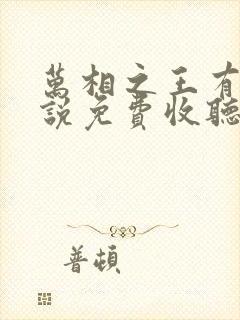 萬相之王有
說免費收聽
普頓